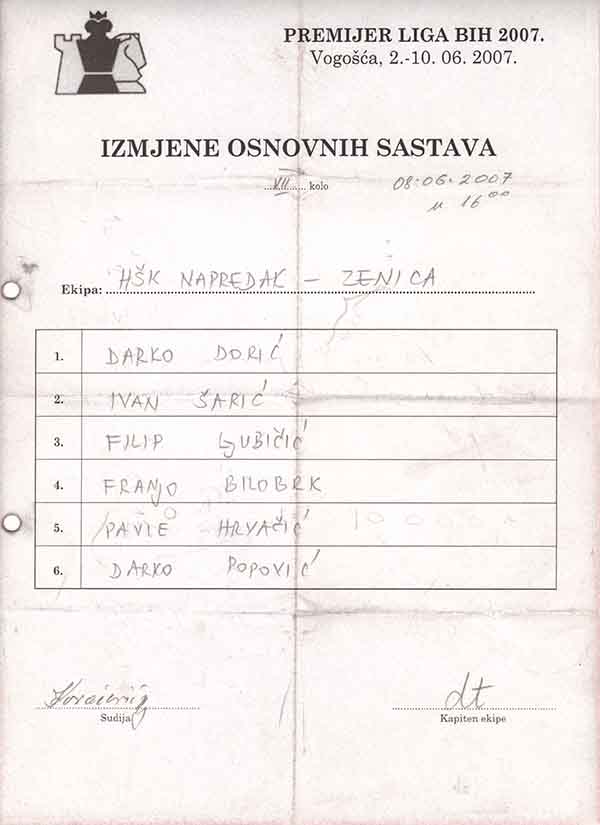 PREMIJER LIGA BIH 2007.
Vogošća, 2.-10. 06. 2007.
IZMJENE OSNOVNIH SASTAVA
....VII...... kolo
08.06.2007
u 16 00
Ekipa: HŠK NAPREDAK – ZENICA
1. DARKO DORIĆ
2. IVAN ŠARIĆ
3. FILIP LJUBIČIĆ
4. FRANJO BILOBRK
5. PAVLE HRVAČIĆ
6. DARKO POPOVIĆ
Sudija
Kapiten ekipe